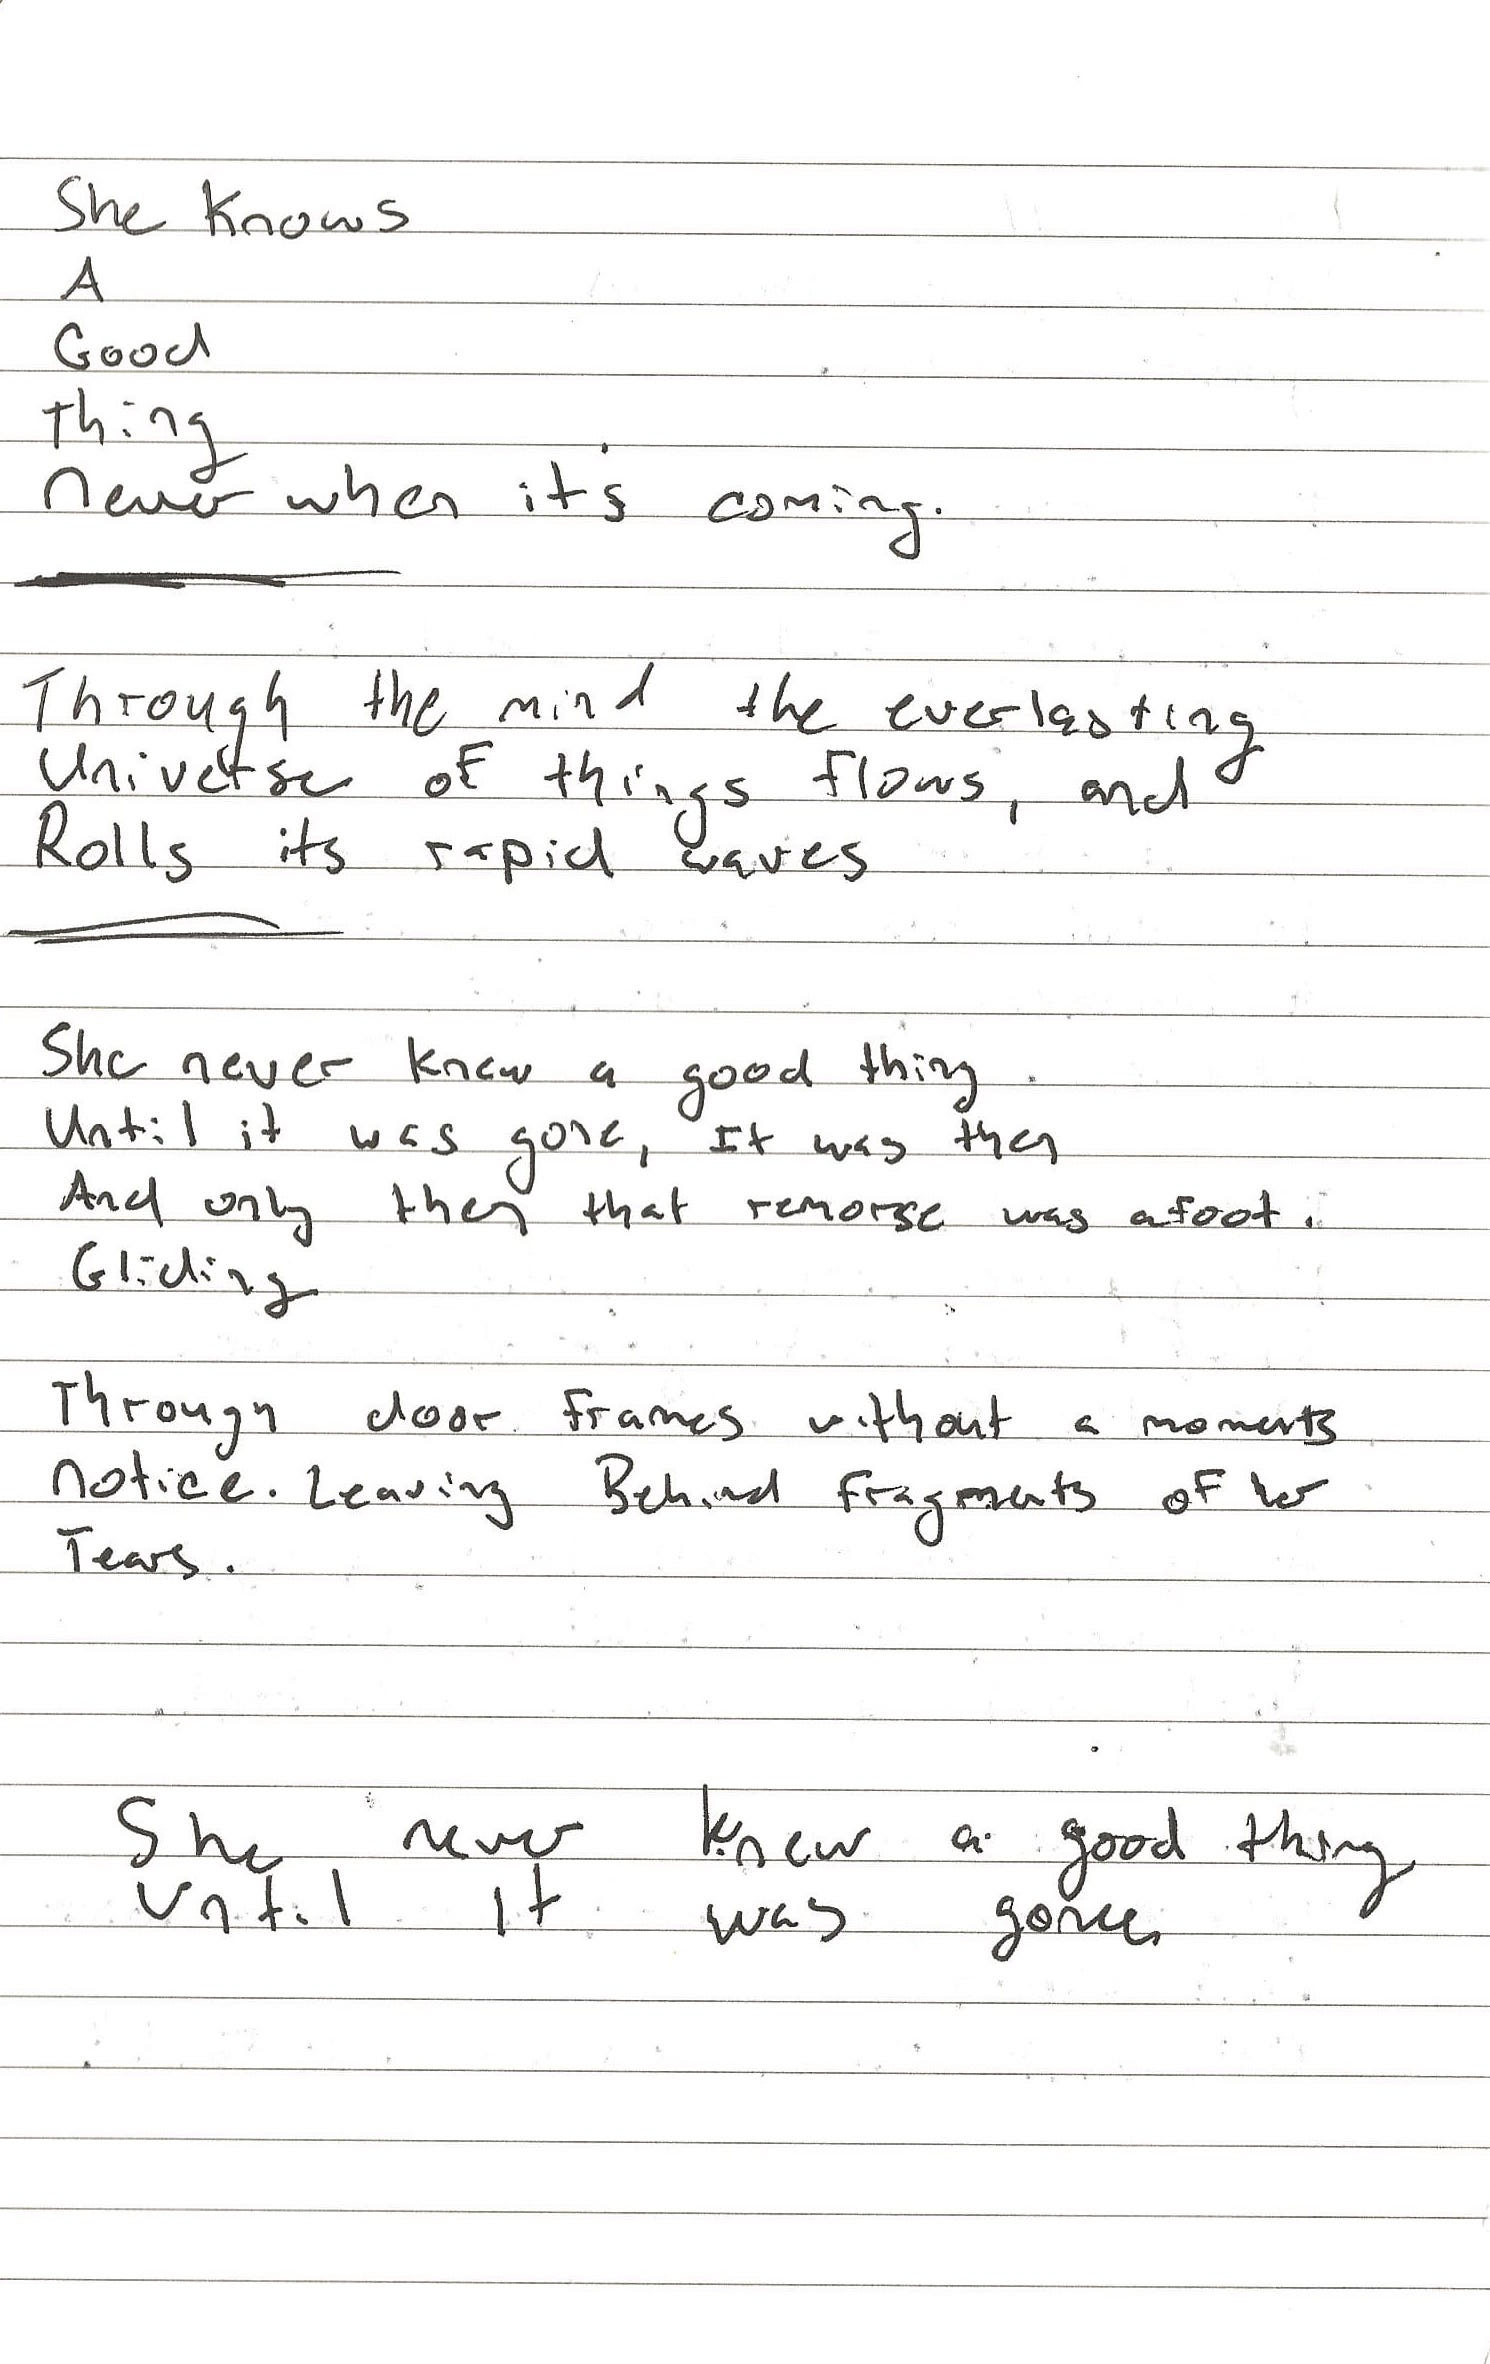 She Knows
A
Good
thing
Never when it's coming.
Through the mind the everlasting
Universe of things flows, and
Rolls its rapid waves
She never knew a good thing
Until it was gone, It was then
And only then that remorse was afoot.
Gliding
Through door frames without a moments
notice. Leaving Behind fragments of her
Tears.
She never knew a good thing
Until It was gone.